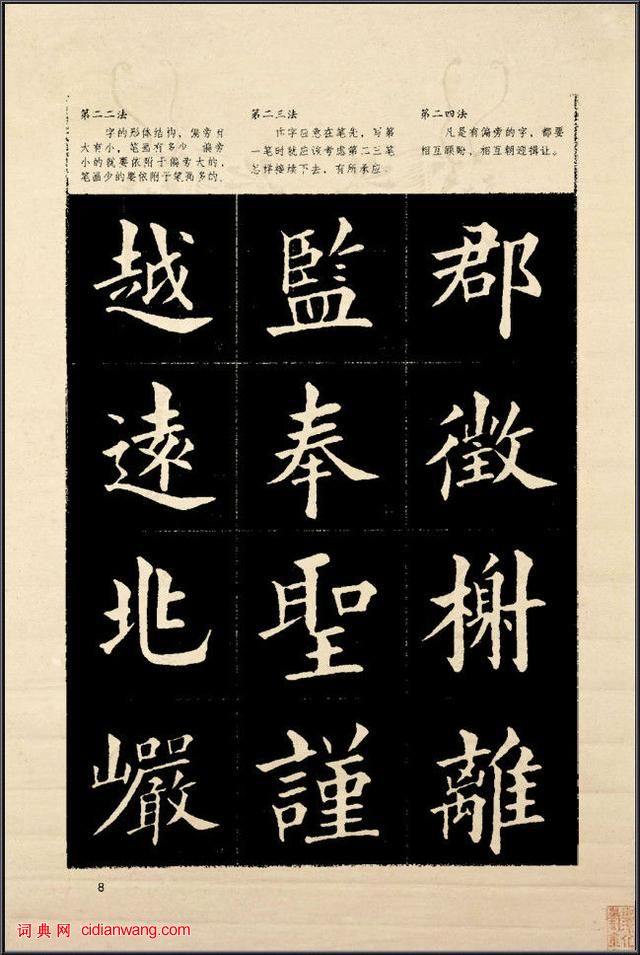 第二二法
字的形体结构，偏旁有
大有小，笔画有多少，偏旁
小的就要依附于偏旁大的，
笔画少的要依附于笔画多的。
第二三法
作字意在笔先，写第
一笔时就应该考虑第二三笔
怎样接续下去，有所承应。
第二四法
凡是有偏旁的字，都要
相互顾盼，相互朝迎揖让。
越 監 郡
遠 奉 徵
北 聖 榭
巗 謹 離
8
词典网 cidianwang.com